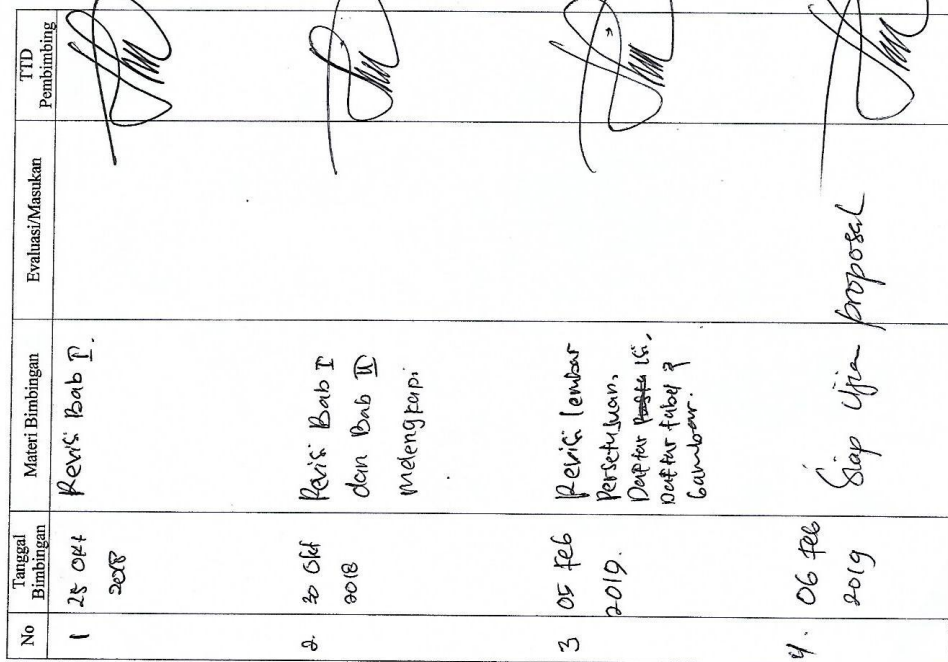 No
Tanggal
Bimbingan
Materi Bimbingan
Evaluasi/Masukan
TTD
Pembimbing
1
25 Okt
2018
Revisi Bab I.
2.
30 Okt
2018
Revisi Bab I
dan Bab III
melengkapi
3
05 Feb
2019.
Revisi lembar
Persetujuan.
Daftar isi,
Daftar tabel &
Gambar.
4.
06 Feb
2019
Siap Ujian proposal